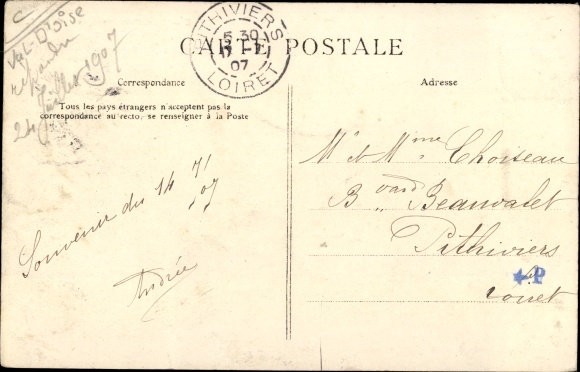 C
Val-D'oise
répondu
24 Juillet 1907
PITHIVIERS
5 30
17 -7
07
LOIRET
CARTE POSTALE
Correspondance
Adresse
Tous les pays étrangers n'acceptent pas la
correspondance au recto, se renseigner à la Poste
Souvenir du 14 7/07
Andrée
Mr et Mme Choiseau
Bvard Beauvalet
Pithiviers
Loiret